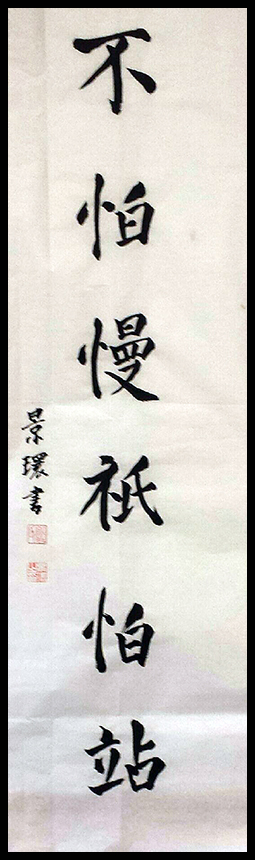 不怕慢祇怕站
景環書